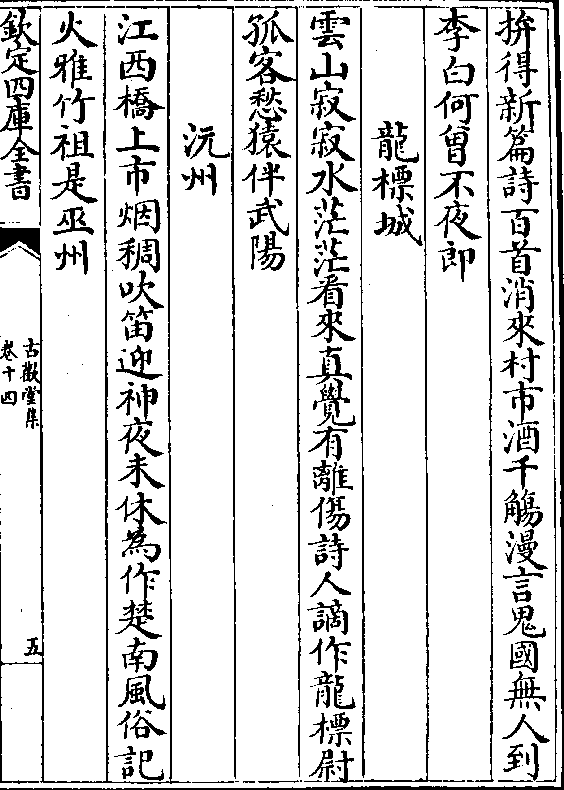 拚得新篇詩百首消來村市酒千觴漫言鬼國無人到
李白何曾不夜郎
龍標城
雲山寂寂水茫茫看來真覺有離傷詩人謫作龍標尉
孤客愁猿伴武陽
沅州
江西橋上市烟稠吹笛迎神夜未休為作楚南風俗記
火雅竹祖是巫州
欽定四庫全書
古歡堂集
卷十四
五